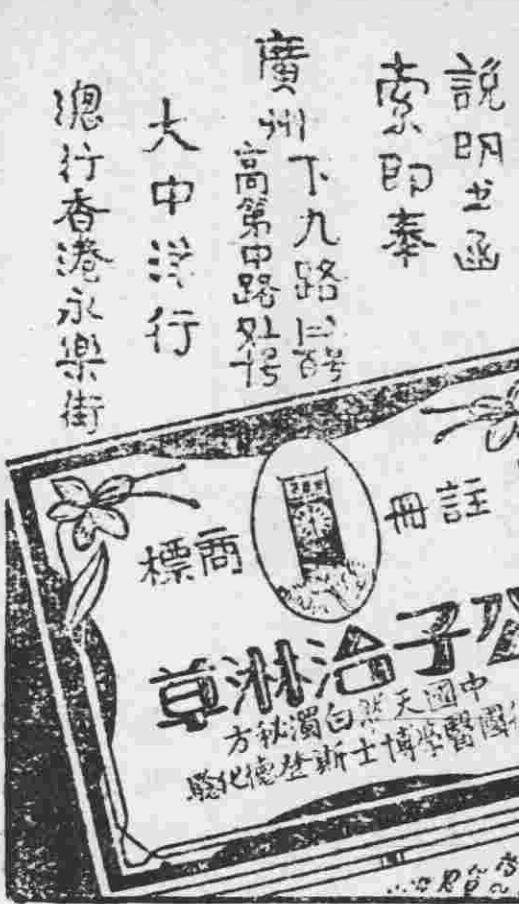 說明书函
索即奉
廣州
下九路
高第中路
大中洋行
總行香港永樂街
註冊
商標
公子治淋草
中國天然白濁秘方
國醫學博士斯登德化驗